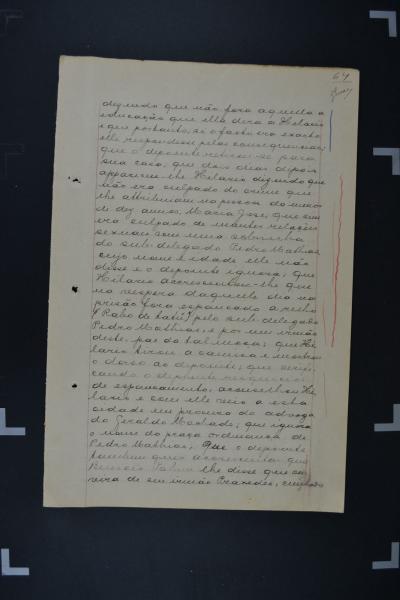 64
dizendo que não fora aquella a
educação que elle dera a Hilario
e que portanto, si o facto era exacto
elle respondesse pelas consequencias;
que o depoente retirou-se para
sua casa; que dois dias depois
appareceu-lhe Hilario dizendo que
não era culpado do crime que
lhe attribuiam na pessoa do menor
de dez annos, Maria José, que sim
era culpado de manter relações
sexuaes com uma sobrinha
do sub-delegado Pedro Mathias,
cujo nome e idade elle não
disse e o depoente ignora; que
Hilario accrescentou-lhe que
na vespera daquelle dia na
prisão fora espancado a relho
(Rabo de tatú) pelo sub-delegado
Pedro Mathias, e por um irmão
deste, pae da tal moça; que Hi-
lario tirou a camisa e mostrou
o dorso ao depoente; que verifi-
cando o depoente vestigios
de espancamento, aconselhou Hi-
lario e com elle veio a esta
cidade em procura do advoga-
do Geraldo Machado; que ignora
o nome do praça ordenança de
Pedro Mathias; Que o depoente
tambem quer accrescentar que
lhe disse que ou-
vira de um irmão